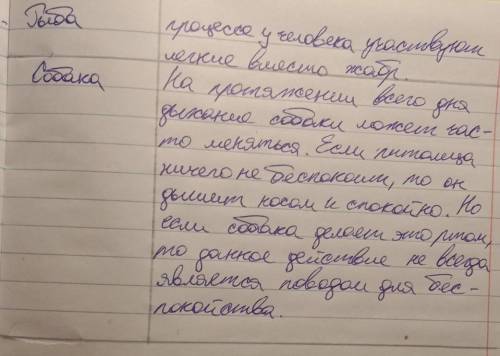 Рыба процессе у человека участвуют
легкие вместо жабр.
Собака На протяжении всего дня
дыхание собаки может час-
то меняться. Если питомца
ничего не беспокоит, то он
дышит носом и спокойно. Но
если собака делает это ртом,
то данное действие не всегда
является поводом для бес-
покойства.